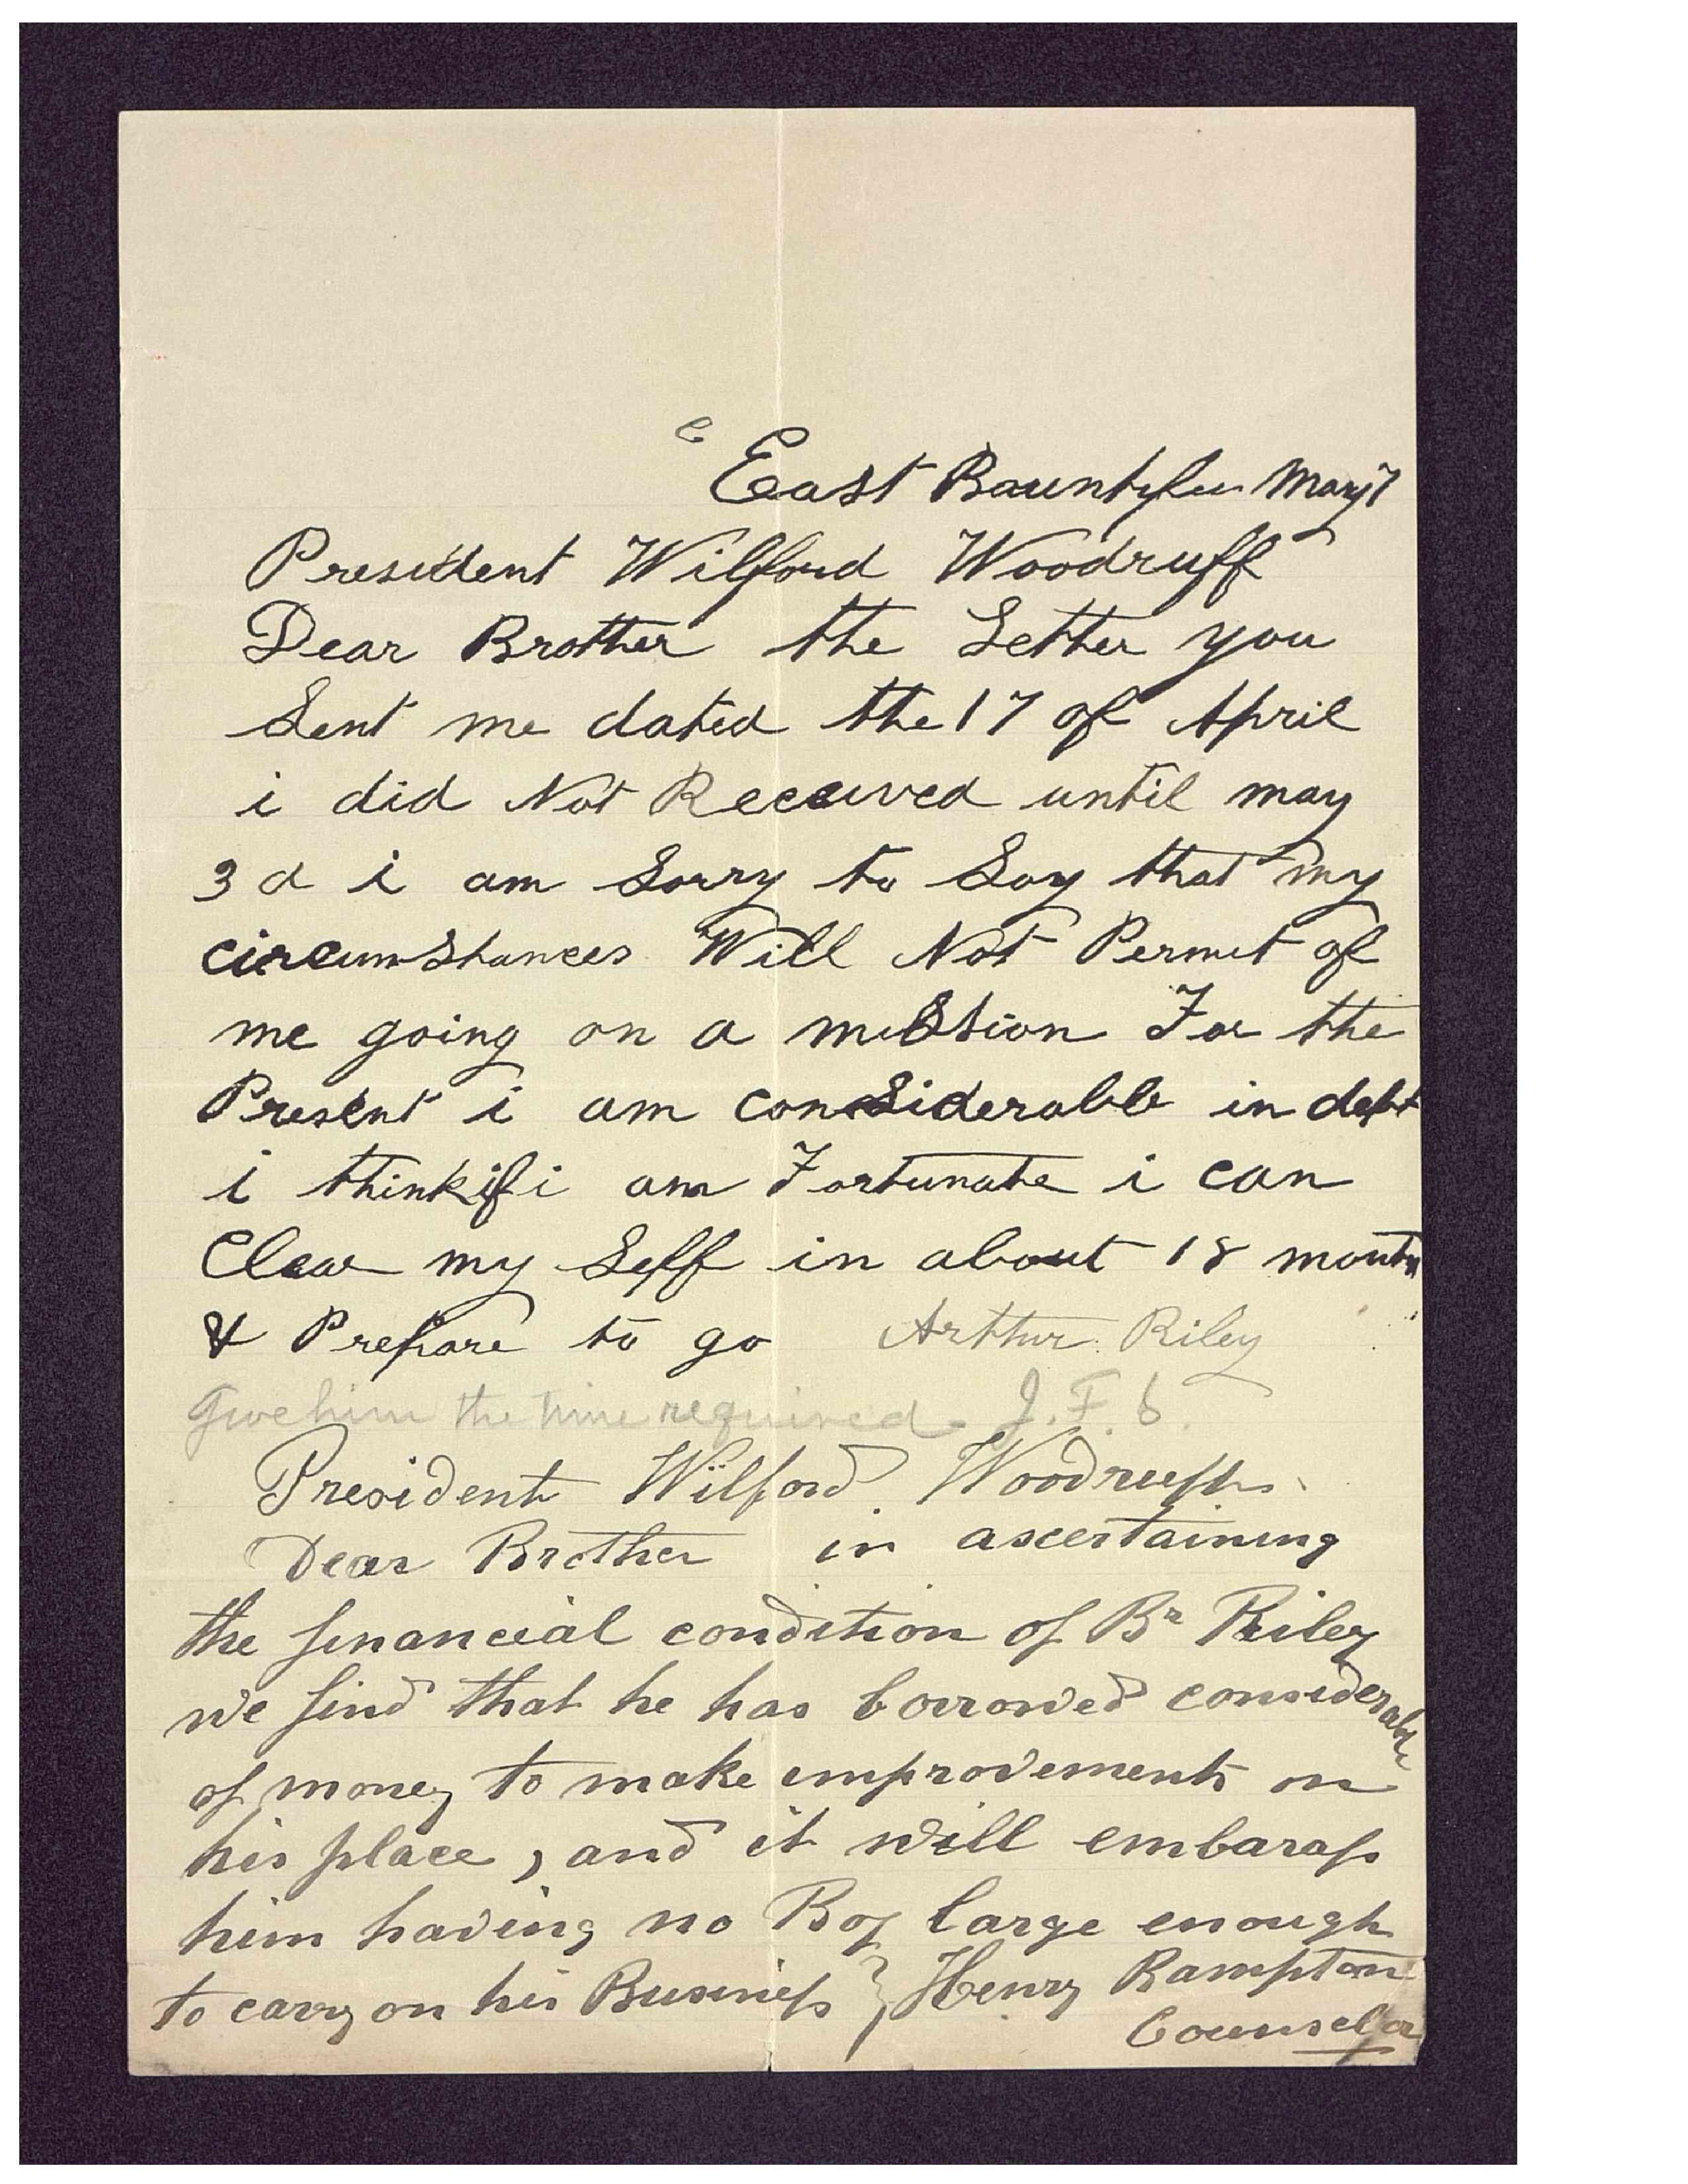 e
East Bauntyful May 7
President Wilford Woodruff
Dear Brother the Letter you
Sent me dated the 17 of April
i did Not Received until may
3 d i am Sorry to Say that my
circumStances Will Not Permit of
me going on a miSsion For the
Present i am conSiderable in debt
i think if i am Fortunate i can
Clear my Self in about 18 months
& Prepare to go Arthur Riley
Give him the time required. J. F. S.
President Wilford Woodruff
Dear Brother in ascertaining
the financial condition of Br Riley
we find that he has borrowed considerable
of money to make improvements on
his place, and it will embarass
him having no Boy large enough
to carry on his Business } Henry Rampton
Counselor